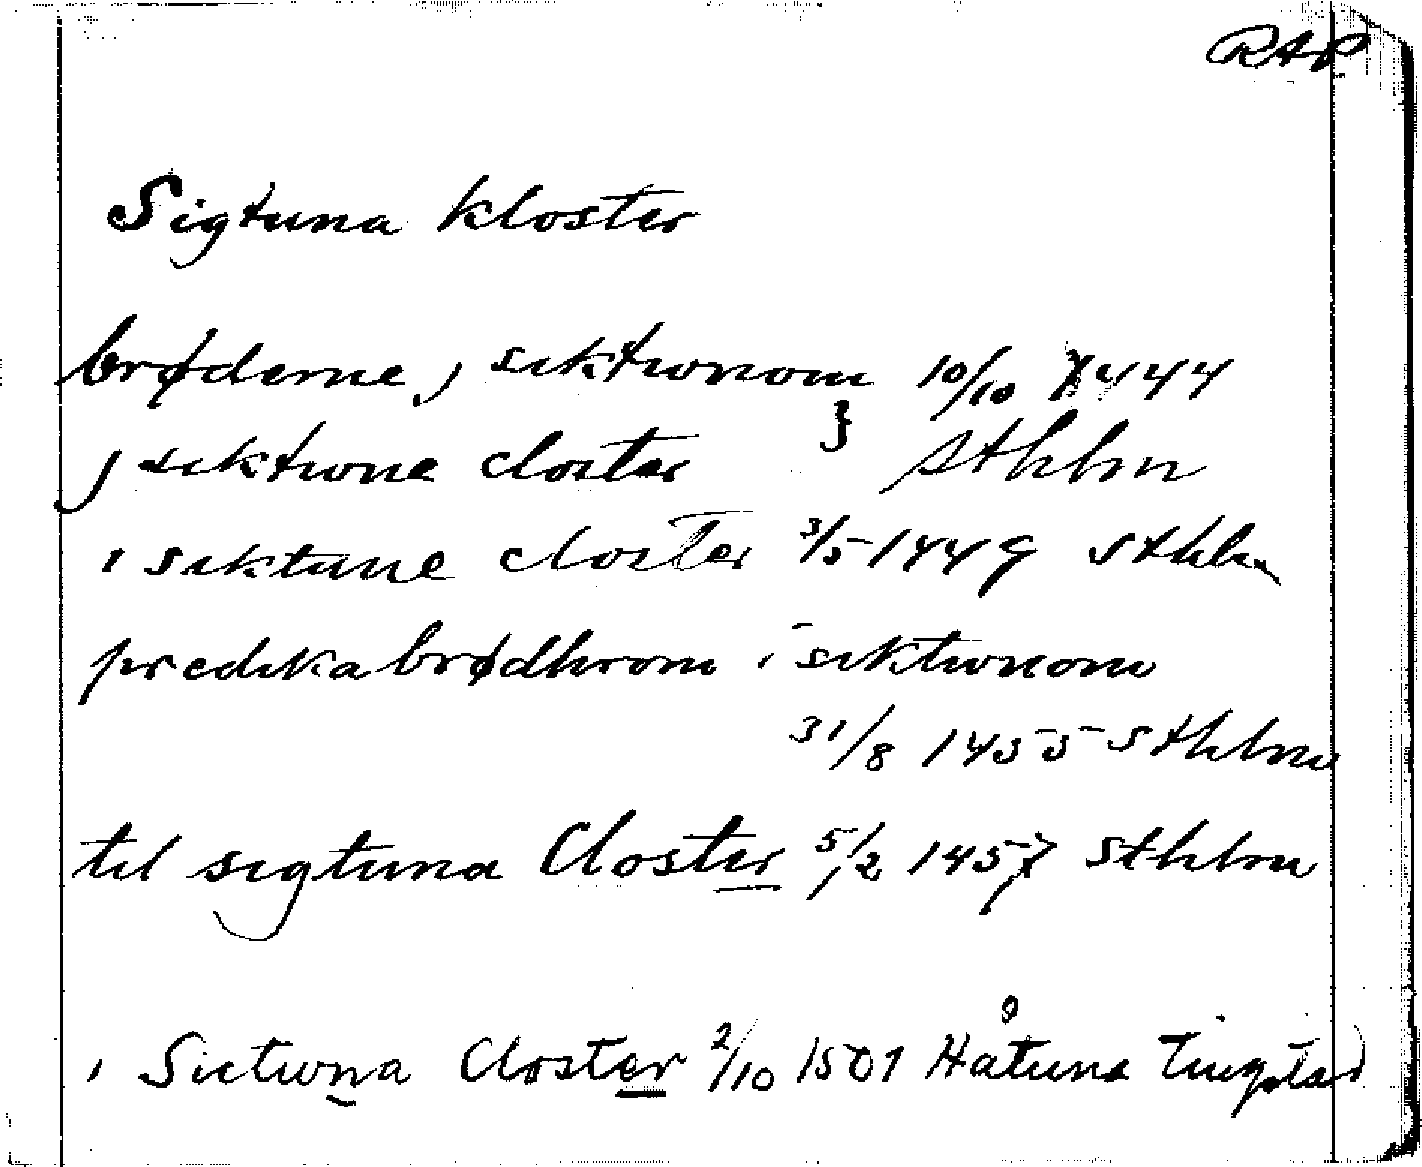 RAP
Sigtuna kloster
brøderne j siktwnom 10/10 1444
j siktwne closter } Sthlm
i siktune closter 3/5 1449 Sthlm
predikabrødhrom i siktwnom
31/8 1455 Sthlm
til sigtuna Closter 5/2 1457 Sthlm
i Sictwna Closter 2/10 1501 Håtuna tingstad